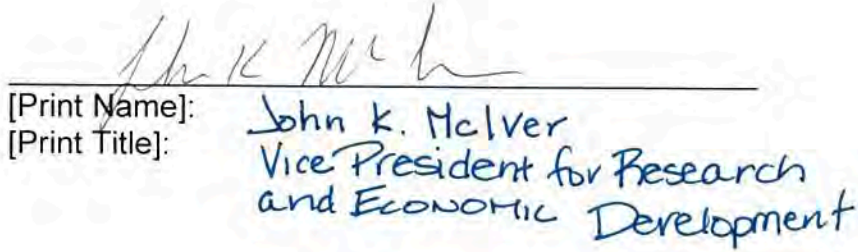 John K McIver
[Print Name]: John K. McIver
[Print Title]: Vice President for Research
and Economic Development